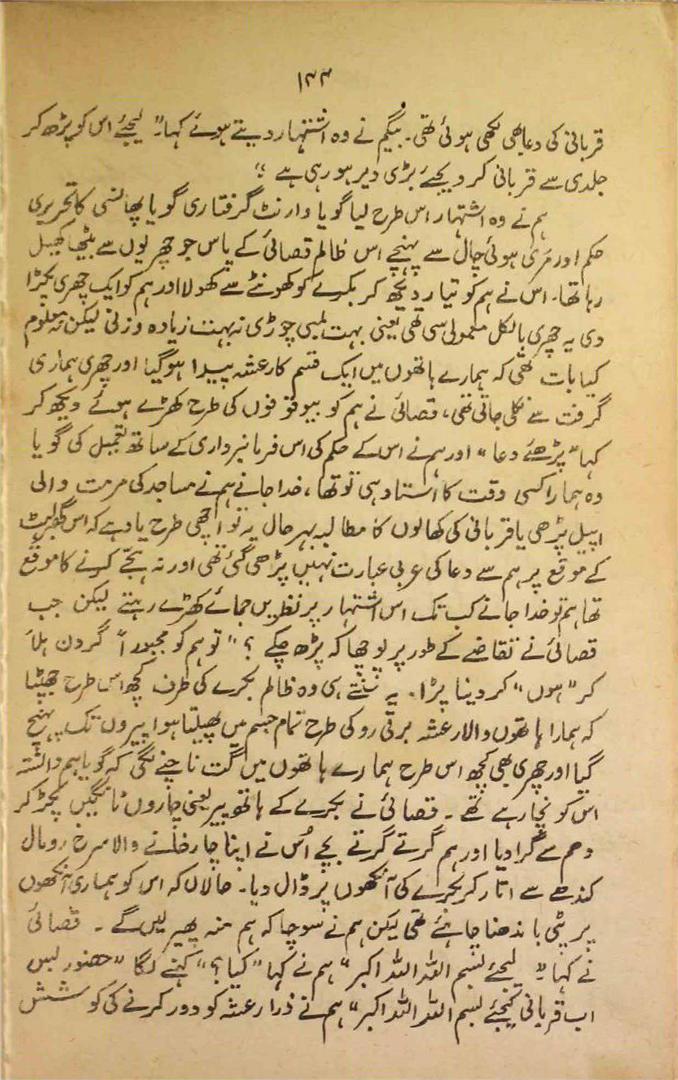 ۱۴۴
قربانی کی دعا بھی لکھی ہوئی تھی۔ بیگم نے وہ اشتہار دیتے ہوئے کہا۔" لیجئے اس کو پڑھ کر
جلدی سے قربانی کر دیجئے بڑی دیر ہو رہی ہے "
ہم نے وہ اشتہار اس طرح لیا گویا وارنٹ گرفتاری گویا پھانسی کا تحریری
حکم اور مری ہوئی چال سے پہنچے اس ظالم قصائی کے پاس جو چھریوں سے بیٹھا کھیل
رہا تھا۔ اس نے ہم کو تیار دیکھ کر بکرے کو کھونٹے سے کھولا اور ہم کو ایک چھری پکڑا
دی یہ چھری بالکل معمولی سی تھی یعنی بہت لمبی چوڑی نہ بہت زیادہ وزنی لیکن نہ معلوم
کیا بات تھی کہ ہمارے ہاتھوں میں ایک قسم کا رعشہ پیدا ہوگیا اور چھری ہماری
گرفت سے نکلی جاتی تھی، قصائی نے ہم کو بیوقوفوں کی طرح کھڑے ہوئے دیکھ کر
کہا "پڑھئے دعا" اور ہم نے اس کے حکم کی اس فرمانبرداری کے ساتھ تعمیل کی گویا
وہ ہمارا کسی وقت کا استاد ہی تو تھا، خدا جانے ہم نے مساجد کی مرمت والی
اپیل پڑھی یا قربانی کی کھالوں کا مطالبہ بہرحال یہ تو اچھی طرح یاد ہے کہ اس گھبراہٹ
کے موقع پر ہم سے دعا کی عربی عبارت نہیں پڑھی گئی تھی اور نہ ہجے کرنے کا موقع
تھا ہم تو خدا جانے کب تک اس اشتہار پر نظریں جمائے کھڑے رہتے لیکن جب
قصائی نے تقاضے کے طور پر پوچھا کہ پڑھ چکے ؟" تو ہم کو مجبوراً گردن ہلا
کر "ہوں" کر دینا پڑا۔ یہ سنتے ہی وہ ظالم بکرے کی طرف کچھ اس طرح جھپٹا
کہ ہمارا ہاتھوں والا رعشہ برقی رو کی طرح تمام جسم میں پھیلتا ہوا پیروں تک پہنچ
گیا اور چھری بھی کچھ اس طرح ہمارے ہاتھوں میں گت ناچنے لگی کہ گویا ہم دانستہ
اس کو نچا رہے تھے۔ قصائی نے بکرے کے ہاتھ پیر یعنی چاروں ٹانگیں پکڑ کر
دھم سے گرا دیا اور ہم گرتے گرتے بچے اُس نے اپنا چارخانے والا سرخ رومال
کندھے سے اتار کر بکرے کی آنکھوں پر ڈال دیا۔ حالاں کہ اس کو ہماری آنکھوں
پر پٹی باندھنا چاہئے تھی لیکن ہم نے سوچا کہ ہم منہ پھیر لیں گے۔ قصائی
نے کہا" لیجئے بسم اللہ اللہ اکبر" ہم نے کہا "کیا؟" کہنے لگا "حضور بس
اب قربانی کیجئے بسم اللہ اللہ اکبر" ہم نے ذرا رعشہ کو دور کرنے کی کوشش